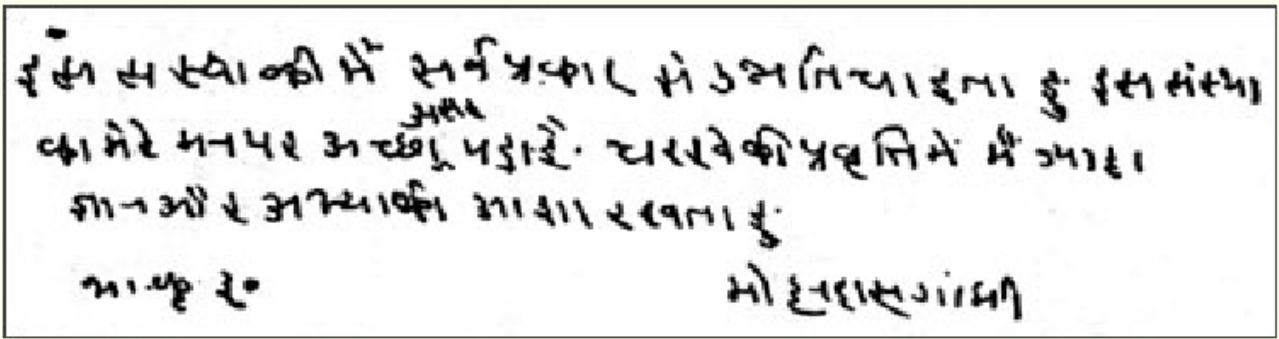 इस संस्था की मैं सर्व प्रकार से उन्नति चाहता हुं इस संस्था
का मेरे मन पर अच्छा असर पड़ा है. चरखे की प्रवृत्ति में मैं ज्यादा
ज्ञान और अभ्यास की आशा रखता हुं
भा. कृ.
मोहनदास गांधी